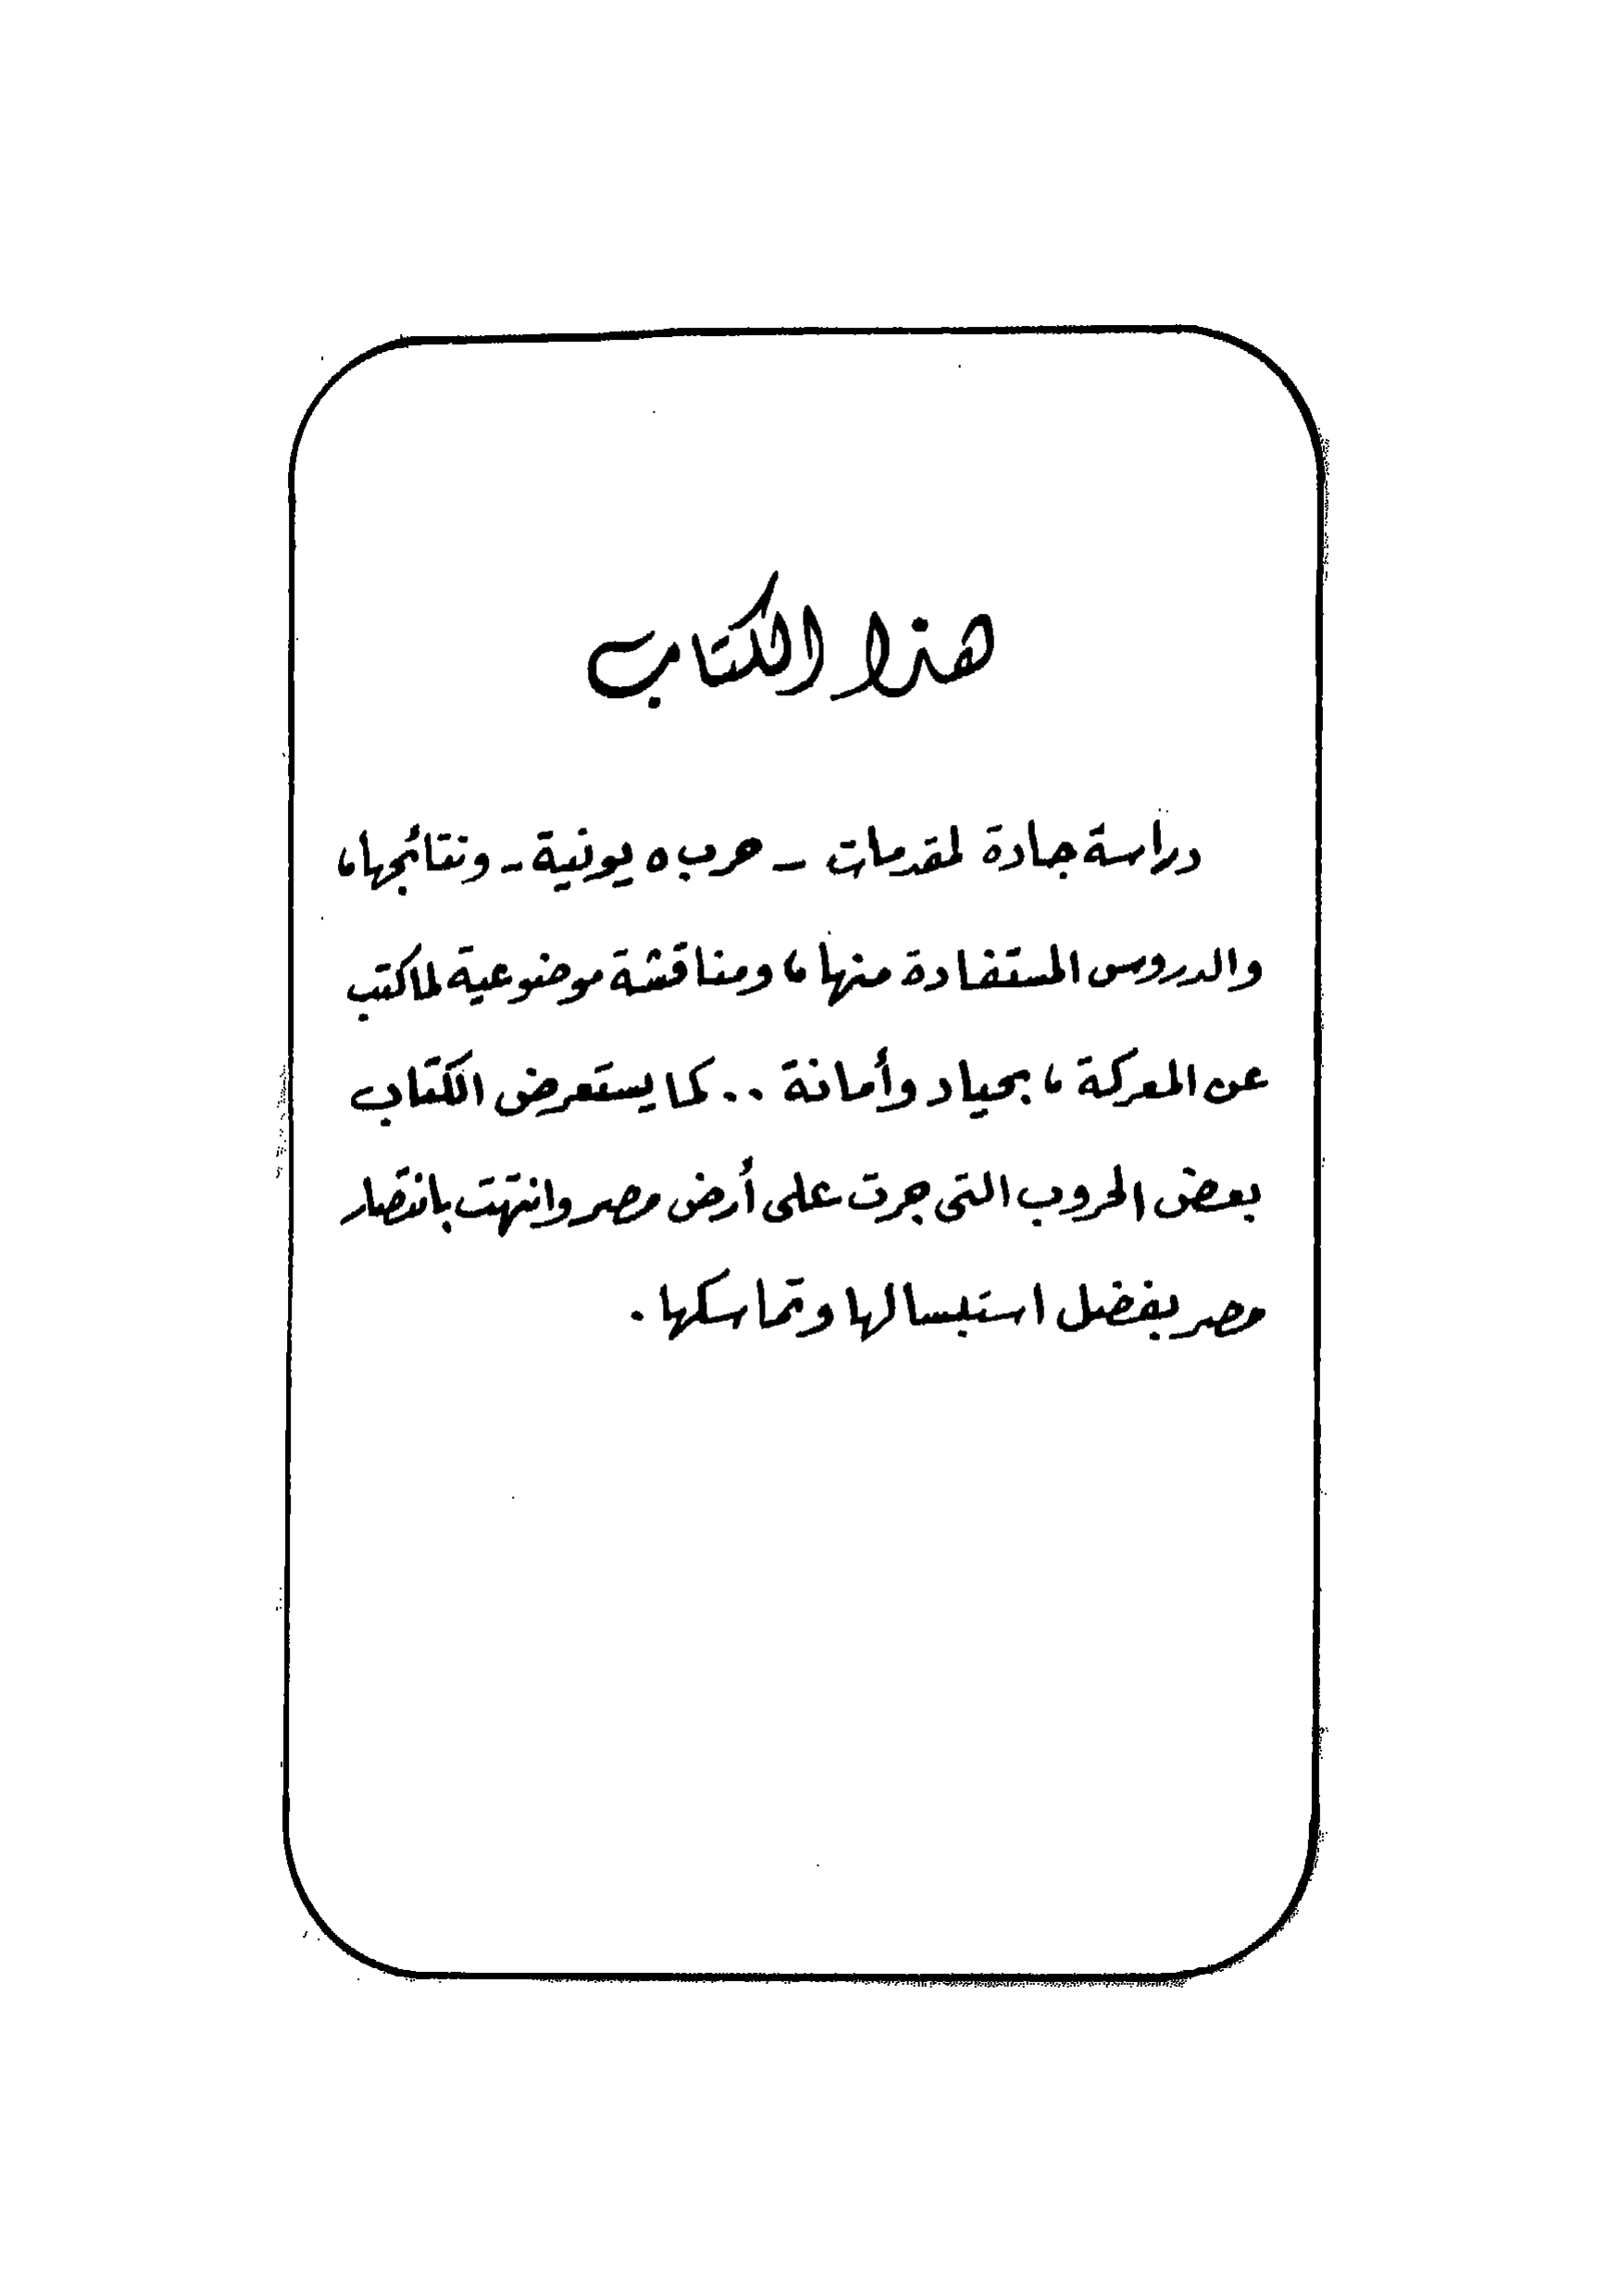 هذا الكتاب
دراسة جادة لمقدمات - حرب ٥ يونية - ونتائجها،
والدروس المستفادة منها، ومناقشة موضوعية لما كتب
عن المعركة، بحياد وأمانة .. كما يستعرض الكتاب
بعض الحروب التى جرت على أرض مصر وانتهت بانتصار
مصر بفضل استبسالها وتماسكها.